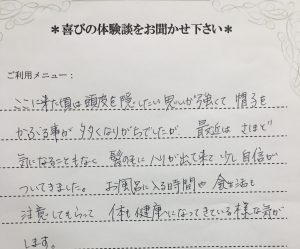 ＊喜びの体験談をお聞かせ下さい＊
ご利用メニュー：
ここに来た頃は頭皮を隠したい思いが強くて 帽子を
かぶる事が多くなりがちでしたが 最近は さほど
気になることもなく 髪の毛にハリが出て来て 少し自信が
ついてきました。 お風呂に入る時間や 食生活も
注意してもらって 体も健康になってきている様な気が
します。